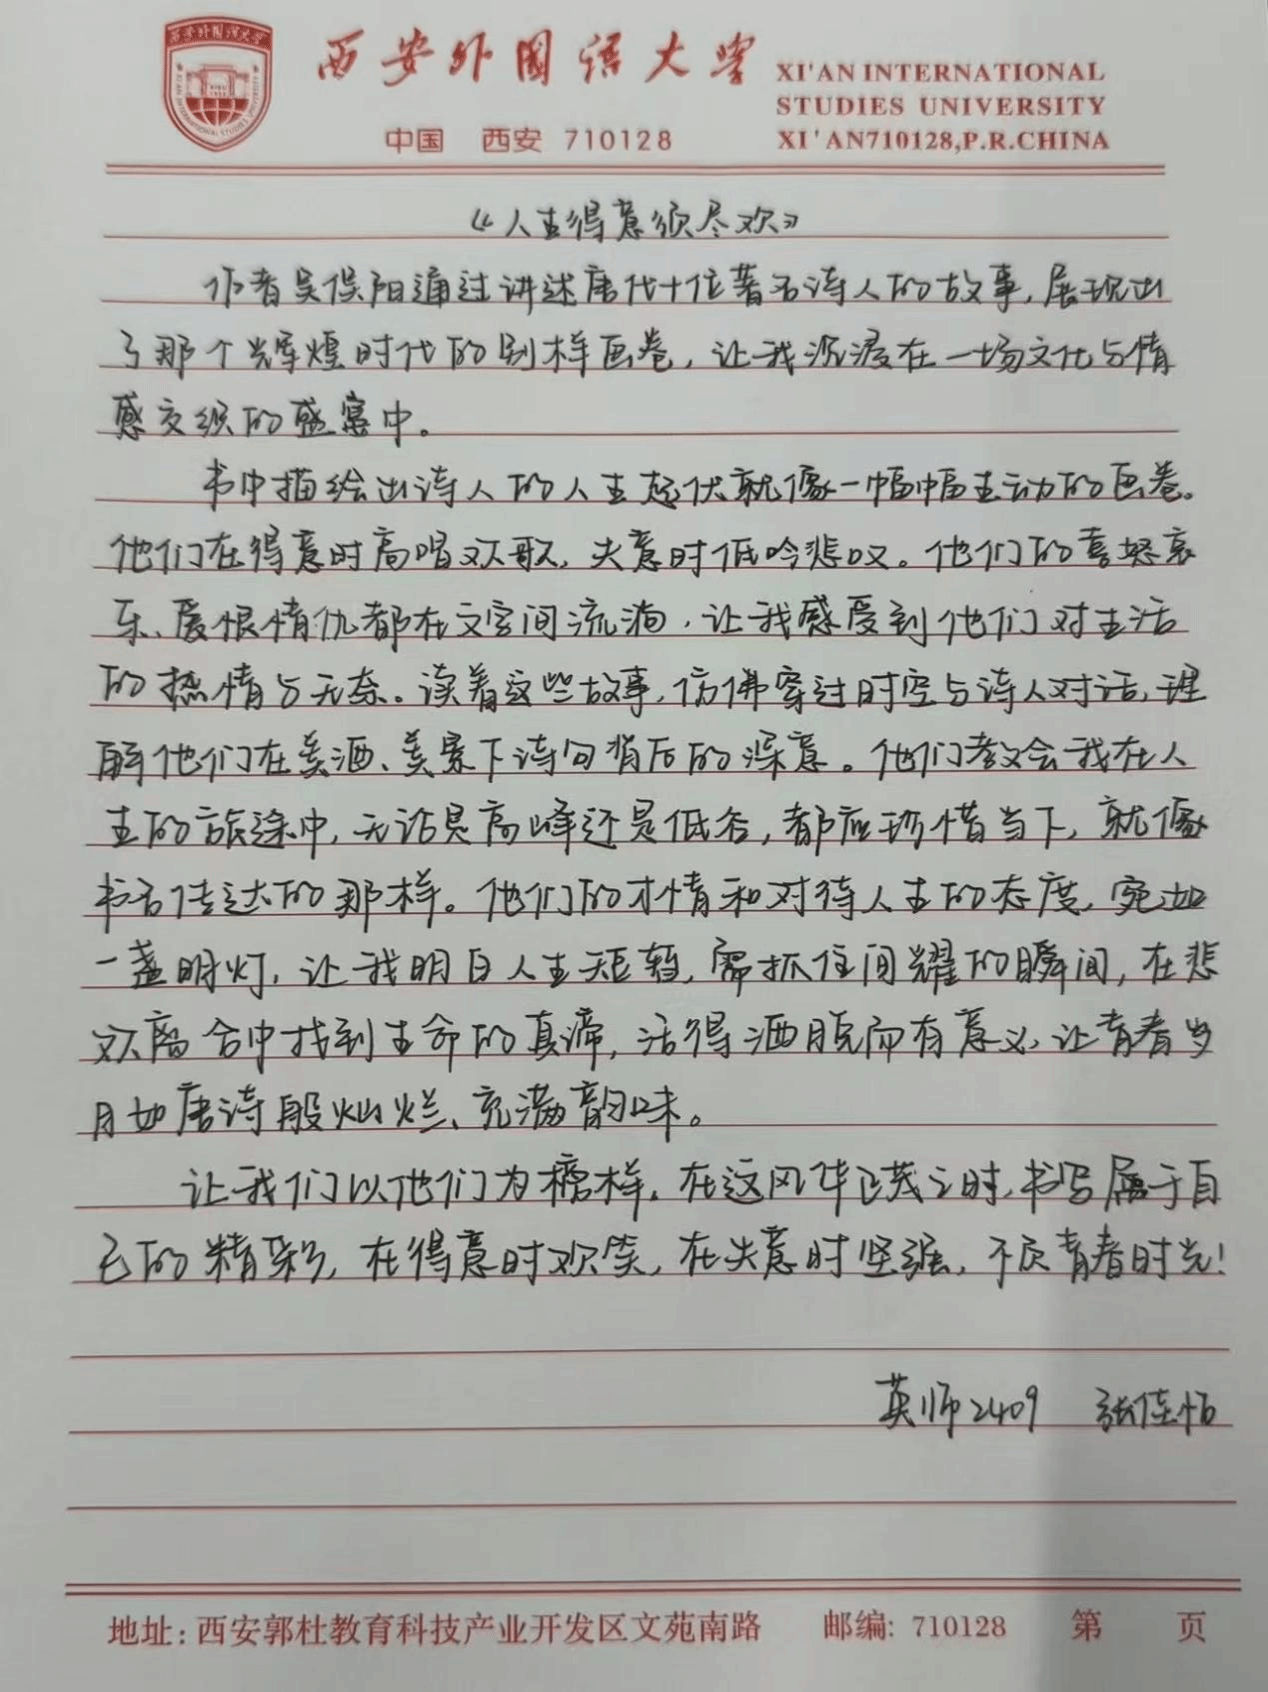 西安外国语大学
XI'AN INTERNATIONAL
STUDIES UNIVERSITY
中国 西安 710128
XI'AN710128,P.R.CHINA
《人生得意须尽欢》
作者吴俣阳通过讲述唐代十位著名诗人的故事,展现出
了那个辉煌时代的别样画卷,让我沉浸在一场文化与情
感交织的盛宴中。
书中描绘出诗人的人生起伏就像一幅幅生动的画卷。
他们在得意时高唱欢歌,失意时低吟悲叹。他们的喜怒哀
乐、爱恨情仇都在文字间流淌,让我感受到他们对生活
的热情与无奈。读着这些故事,仿佛穿过时空与诗人对话,理
解他们在美酒、美景下诗句背后的深意。他们教会我在人
生的旅途中,无论是高峰还是低谷,都应珍惜当下,就像
书名传达的那样。他们的才情和对待人生的态度,宛如
一盏明灯,让我明白人生短暂,需抓住闪耀的瞬间,在悲
欢离合中找到生命的真谛,活得洒脱而有意义,让青春岁
月如唐诗般灿烂、充满韵味。
让我们以他们为榜样,在这风华正茂之时,书写属于自
己的精彩,在得意时欢笑,在失意时坚强,不负青春时光!
英师2409 张佳怡
地址:西安郭杜教育科技产业开发区文苑南路 邮编: 710128 第 页